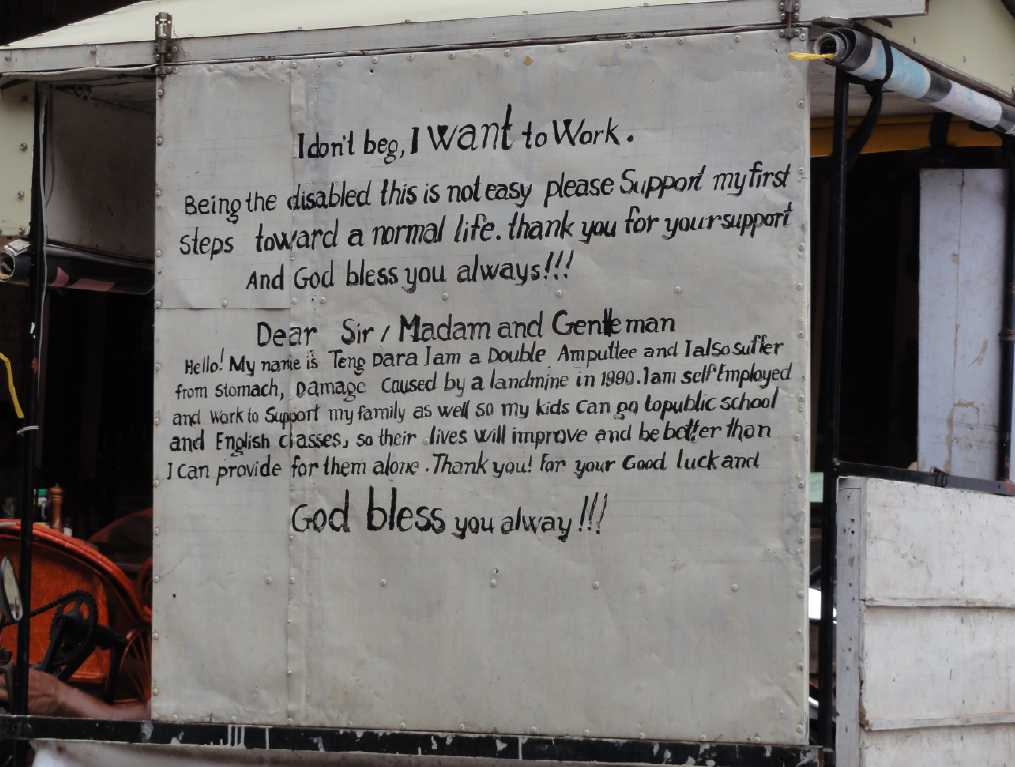 I don't beg, I want to Work.
Being the disabled this is not easy please Support my first
Steps toward a normal life. thank you for your support
And God bless you always!!!
Dear Sir / Madam and Gentleman
Hello! My name is Teng Dara I am a Double Amputlee and I also suffer
from stomach, Damage Caused by a landmine in 1990. I am self Employed
and Work to Support my family as well so my kids Can go to public school
and English classes, so their lives will improve and be better than
I Can provide for them alone. Thank you! For your Good luck and
God bless you alway!!!